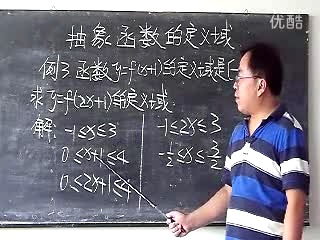 优酷
抽象函数的定义域
例3 函数y=f(x+1)的定义域是[-
求y=f(2x+1)的定义域
解: -1≤x≤3
0≤x+1≤4
0≤2x+1≤4
-1≤2x≤3
-1/2≤x≤3/2